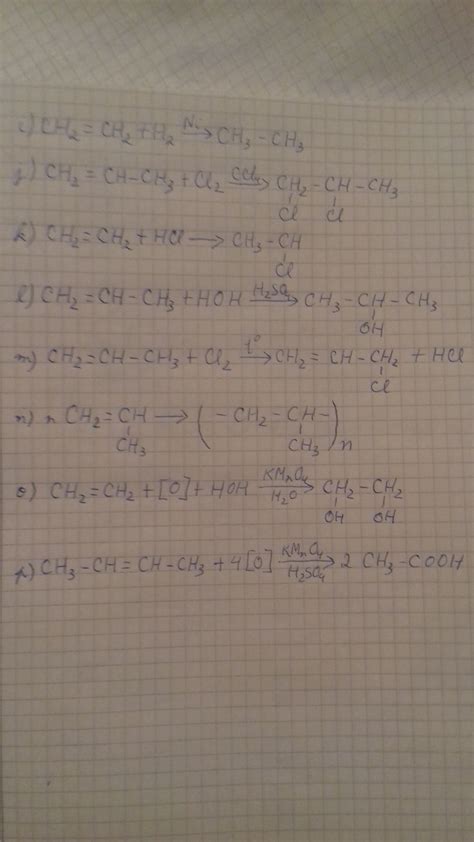 i) CH₂=CH₂+H₂ —Ni→ CH₃-CH₃
j) CH₂=CH-CH₃+Cl₂ —CCl₄→ CH₂-CH-CH₃
Cl Cl
k) CH₂=CH₂+HCl → CH₃-CH
Cl
l) CH₂=CH-CH₃+HOH —H₂SO₄→ CH₃-CH-CH₃
OH
m) CH₂=CH-CH₃+Cl₂ —t°→ CH₂=CH-CH₂ + HCl
Cl
n) n CH₂=CH → (-CH₂-CH-)n
CH₃ CH₃
o) CH₂=CH₂+[O]+HOH —KMnO₄/H₂O→ CH₂-CH₂
OH OH
p) CH₃-CH=CH-CH₃+4[O] —KMnO₄/H₂SO₄→ 2 CH₃-COOH